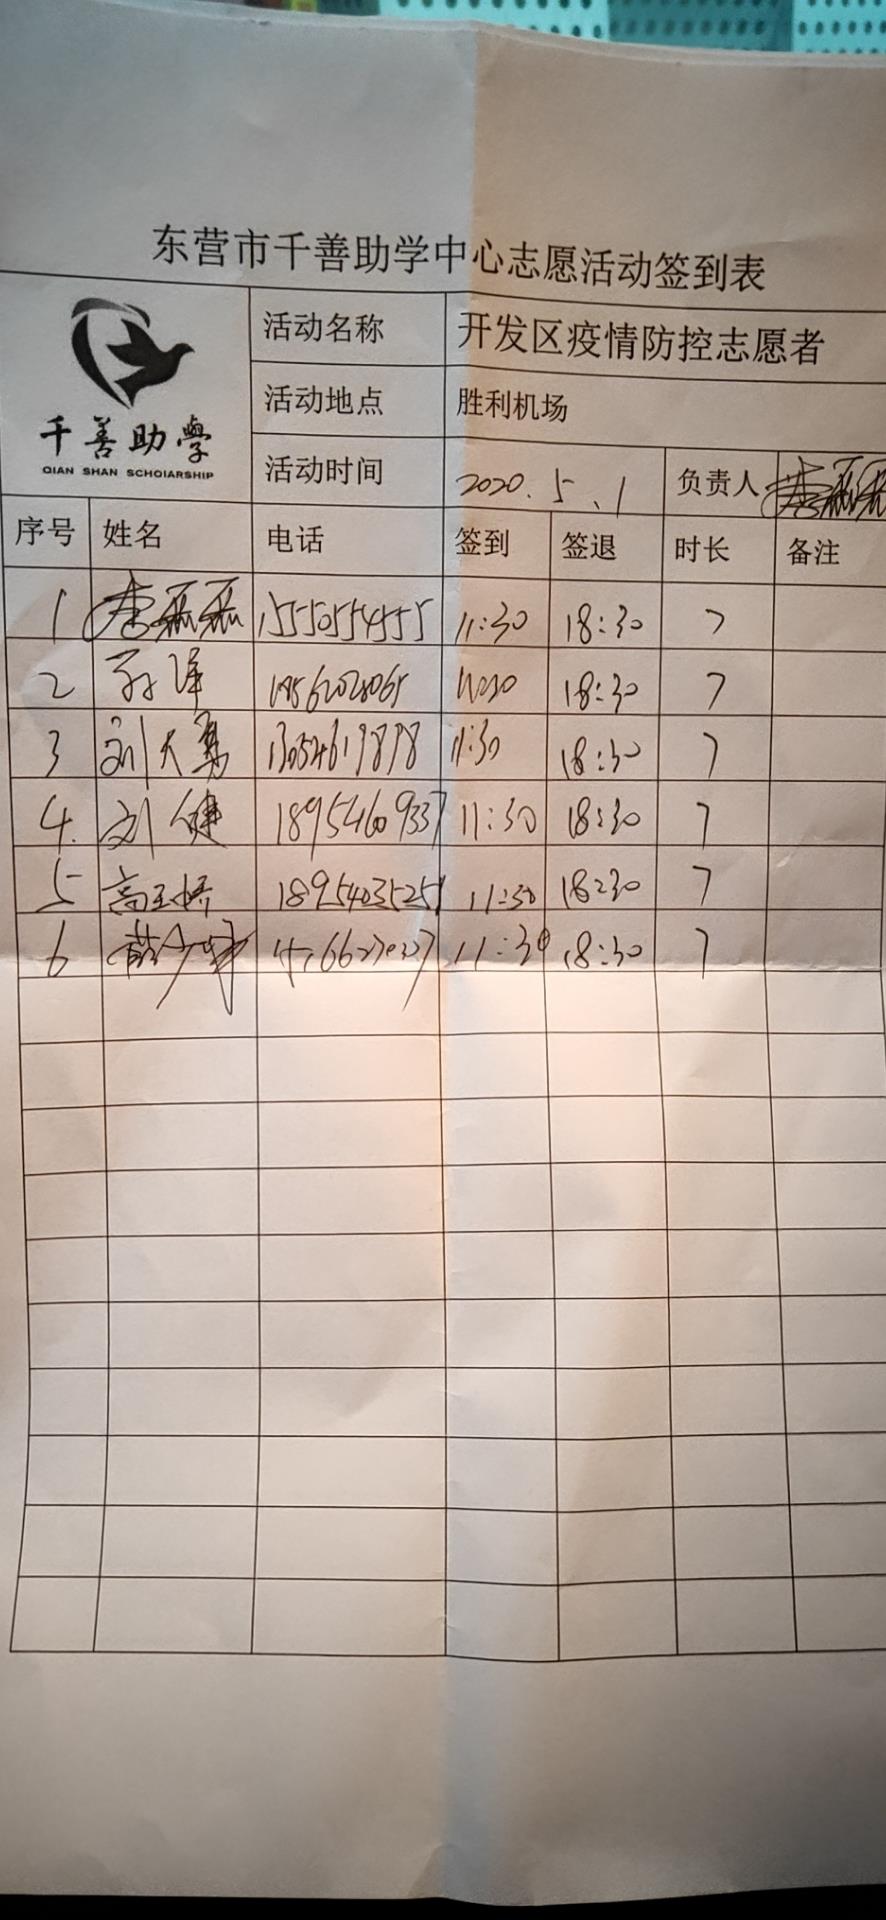 东营市千善助学中心志愿活动签到表
千善助學
QIAN SHAN SCHOIARSHIP
活动名称 开发区疫情防控志愿者
活动地点 胜利机场
活动时间 2020.5.1 负责人 李磊磊
序号 姓名 电话 签到 签退 时长 备注
1 李磊磊 15550554555 11:30 18:30 7
2 18:30 7
3 刘大勇 13054619898 11:30 18:30 7
4. 刘健 18954609337 11:30 18:30 7
5 18954035251 11:30 18:30 7
6 11:30 18:30 7